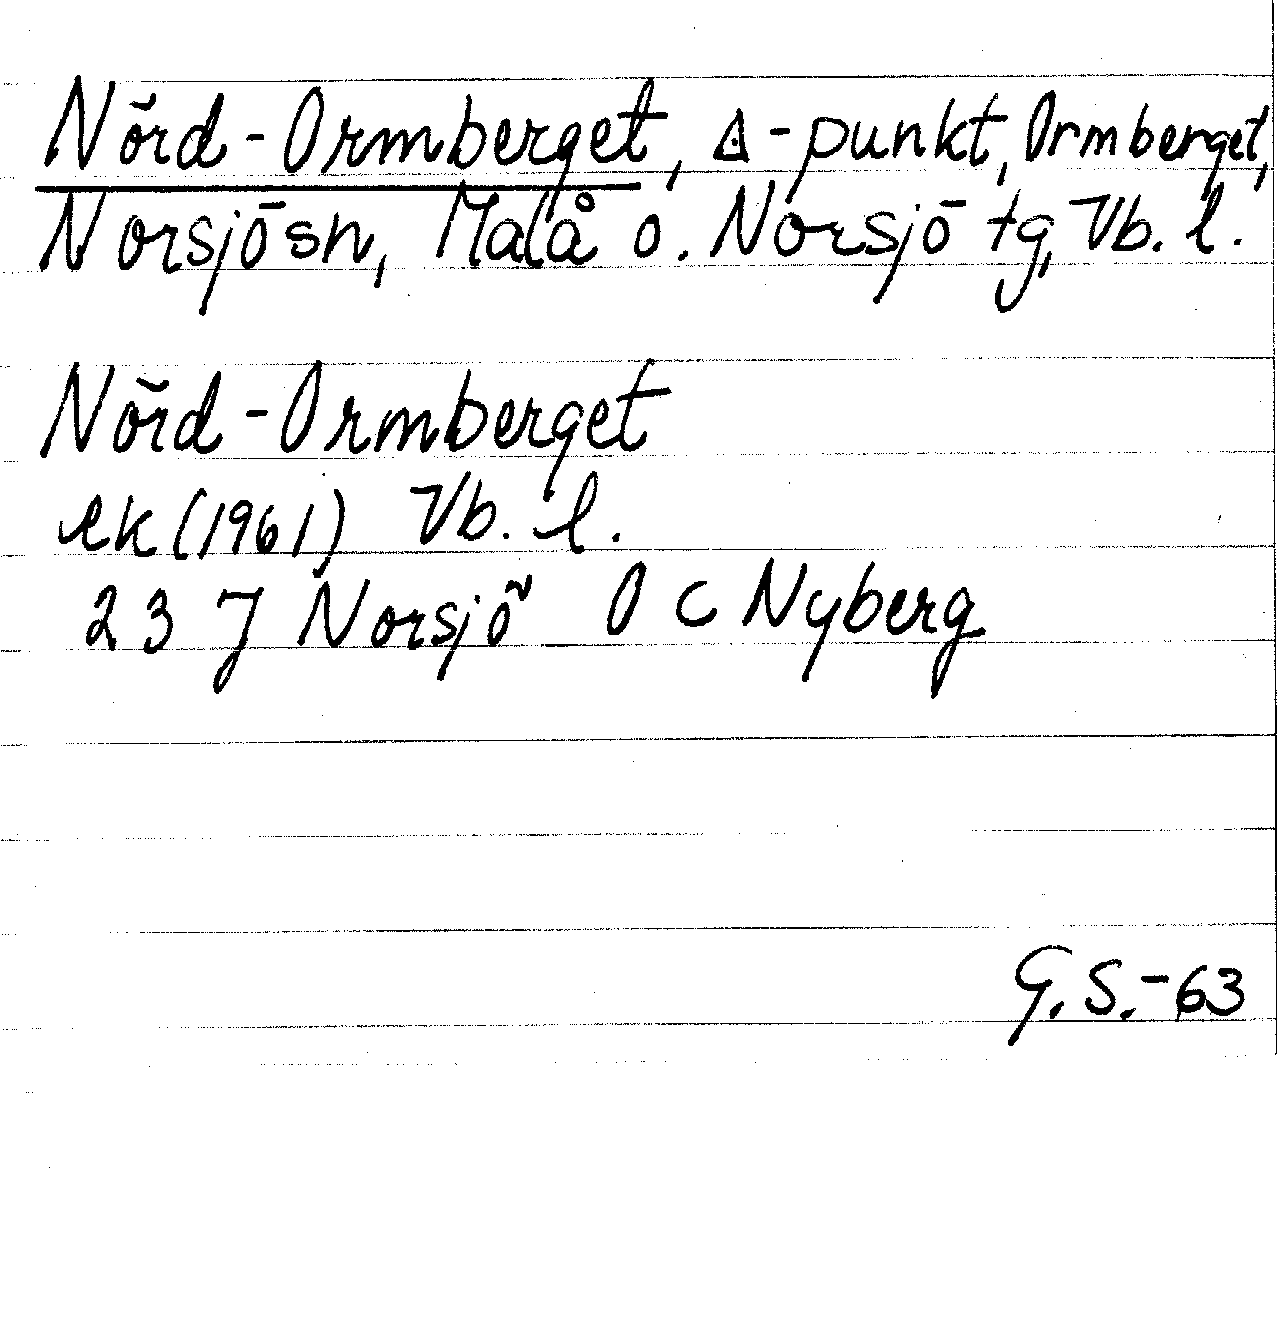 Nörd-Ormberget, Δ-punkt, Ormberget,
Norsjö sn, Malå o. Norsjö tg, Vb. l.
Nörd-Ormberget
ek (1961) Vb. l.
23 J Norsjö O C Nyberg
G.S.-63